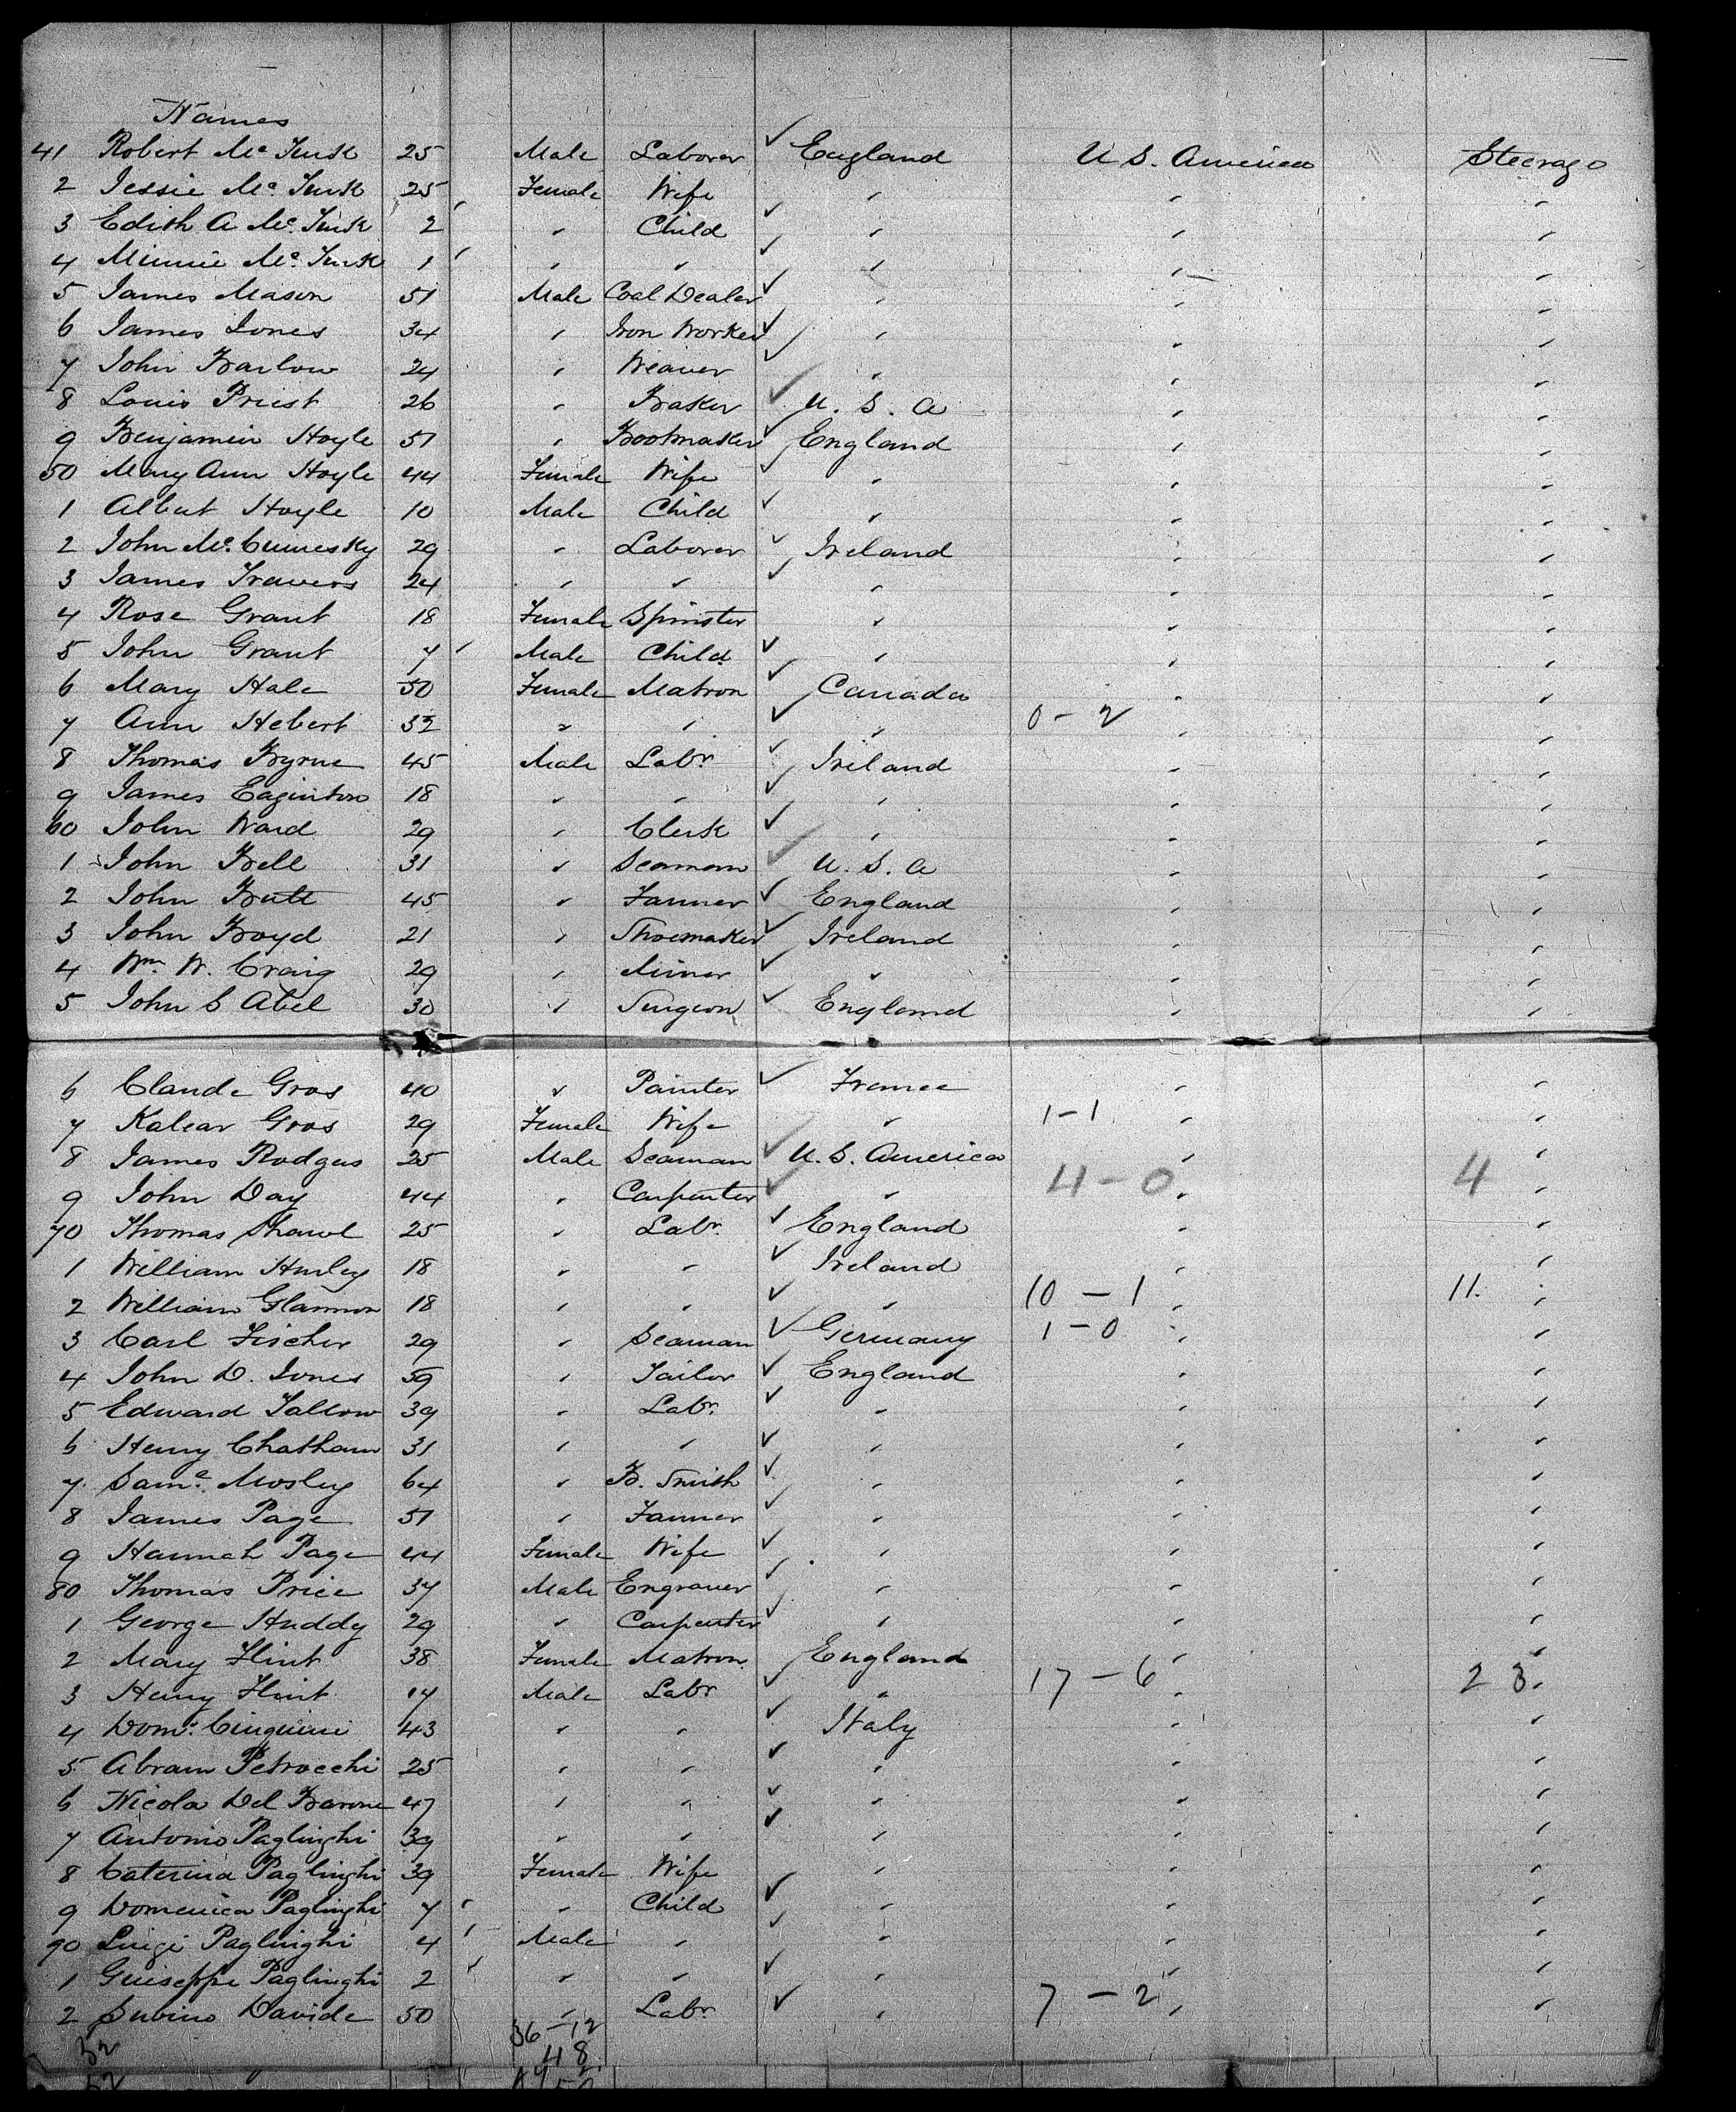 Names
41 Robert Mc Turk 25 Male Laborer ✓ England U S. America Steerage
2 Jessie Mc Turk 25 Female Wife " " "
3 Edith A Mc Turk 2 " Child ✓ " " "
4 Minnie Mc Turk 1 " " ✓ " " "
5 James Mason 51 Male Coal Dealer ✓ " " "
6 James Jones 34 " Iron Worker ✓ " " "
7 John Barlow 24 " Weaver ✓ " " "
8 Louis Priest 26 " Baker ✓ U. S. A " "
9 Benjamin Hoyle 51 " Bootmaker ✓ England " "
50 Mary Ann Hoyle 44 Female Wife ✓ " " "
1 Albert Hoyle 10 Male Child ✓ " " "
2 John Mc. Cumesky 29 " Laborer ✓ Ireland " "
3 James Travers 24 " " ✓ " " "
4 Rose Grant 18 Female Spinster " " "
5 John Grant 7 Male Child ✓ " " "
6 Mary Hale 50 Female Matron ✓ Canada " "
7 Ann Hebert 32 " " ✓ " 0 - 2 " "
8 Thomas Byrne 45 Male Labr. ✓ Ireland " "
9 James Eaginton 18 " " ✓ " " "
60 John Ward 29 " Clerk ✓ " " "
1 John Bell 31 " Seaman ✓ U. S. A " "
2 John Butt 45 " Farmer ✓ England " "
3 John Boyd 21 " Shoemaker ✓ Ireland " "
4 Wm. W. Craig 29 " Miner ✓ " " "
5 John S Abel 30 " Surgeon ✓ England " "
6 Claude Gros 40 " Painter ✓ France " "
7 Gros 29 Female Wife " 1 - 1 " "
8 James Rodgers 25 Male Seaman ✓ U. S. America " "
9 John Day 44 " Carpenter ✓ " 4 - 0 " 4 "
70 Thomas 25 " Labr. ✓ England " "
1 William Hurley 18 " " ✓ Ireland " "
2 William Glannon 18 " " ✓ " 10 - 1 " 11. "
3 Carl Fischer 29 " Seaman ✓ Germany 1 - 0 " "
4 John D. Jones 59 " Tailor ✓ England " "
5 Edward Tallow 39 " Labr. ✓ " " "
6 Henry Chatham 31 " " ✓ " " "
7 Saml. Mosley 64 " B. Smith ✓ " " "
8 James Page 51 " Farmer ✓ " " "
9 Hannah Page 44 Female Wife ✓ " " "
80 Thomas Price 37 Male Engraver ✓ " " "
1 George Huddy 29 " Carpenter ✓ " " "
2 Mary Flint 38 Female Matron England " "
3 Henry Flint 17 Male Labr ✓ " 17 - 6 " 23 "
4 Domc. Cinquini 43 " " ✓ Italy " "
5 Abram Petrocchi 25 " " ✓ " " "
6 Nicola Del Barone 47 " " ✓ " " "
7 Antonio Paglinghi 39 " " ✓ " " "
8 Caterina Paglinghi 39 Female Wife " " "
9 Domenica Paglinghi 7 " Child ✓ " " "
90 Luigi Paglinghi 4 Male " ✓ " " "
1 Guiseppe Paglinghi 2 " " ✓ " " "
2 Subino Davide 50 " Labr. ✓ " 7 - 2 " "
36 - 12
32 48
52